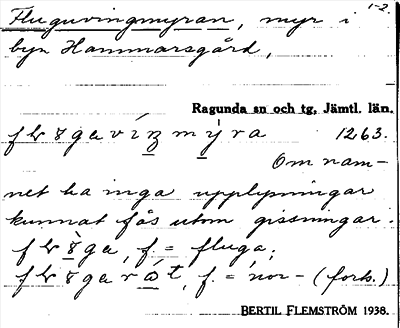 1-2.
Fluguvingmyran, myr i
byn Hammarsgård,
Ragunda sn och tg, Jämtl. län.
1263.
Om nam-
net ha inga upplysningar
kunnat fås utom gissningar.
f = fluga;
f. = nor- (forts.)
BERTIL FLEMSTRÖM 1938.